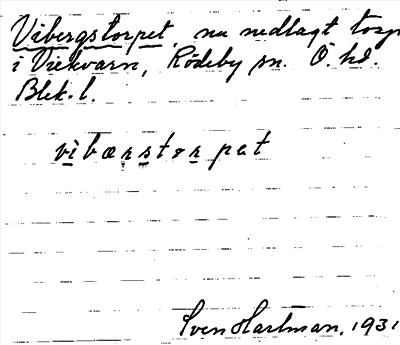 Vibergstorpet, nu nedlagt torp
i Viekvarn, Rödeby sn. Ö. hd.
Blek. l.
vibærstørpat
Sven Hartman, 1931